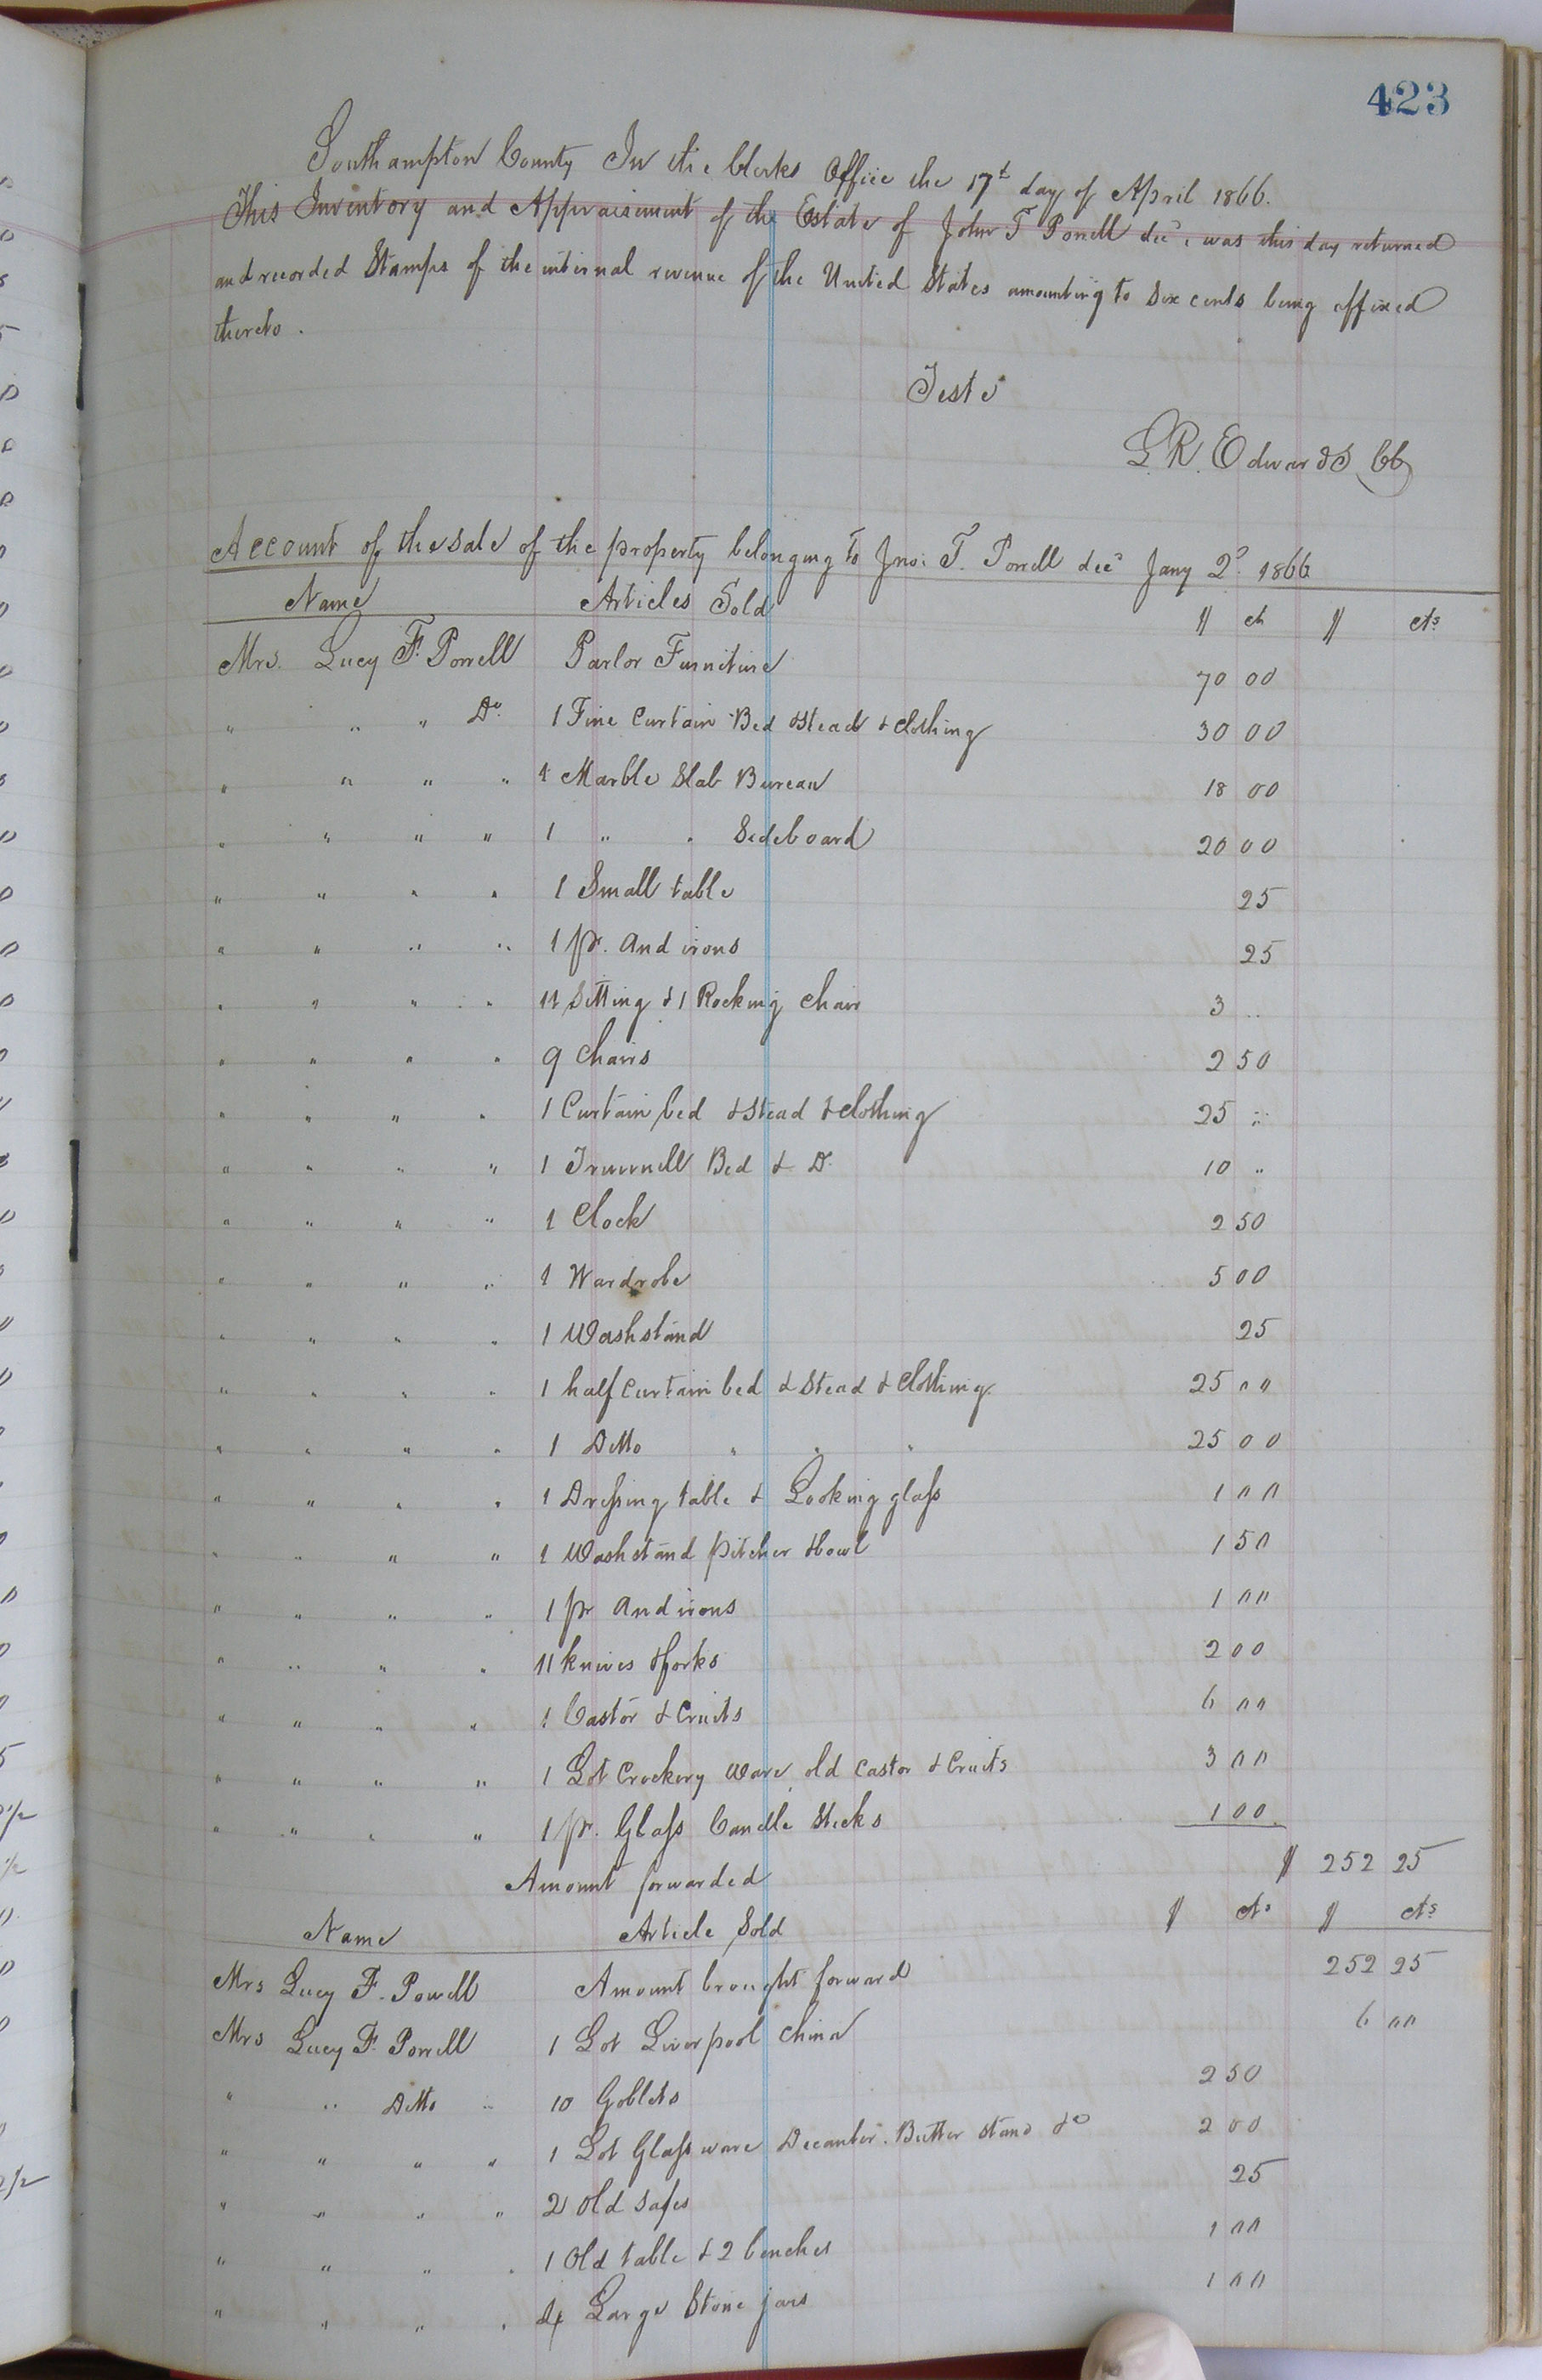 423
Southampton County In the Clerks Office the 17t day of April 1866.
This Inventory and Appraisement of the Estate of John T Powell decd, was this day returned
and recorded Stamps of the internal revenue of the United States amounting to Six cents being affixed
thereto.
Teste
L. R. Edwards CC
Account of the sale of the property belonging to Jno: T. Powell decd Jany 2d 1866
Name Articles Sold $ ct $ cts
Mrs. Lucy F. Powell Parlor Furniture 70 00
" " " Do. 1 Fine Curtain Bed & Stead & Clothing 30 00
" " " " 1 Marble Slab Bureau 18 00
" " " " 1 " " Sideboard 20 00
" " " " 1 Small table 25
" " " " 1 pr. And irons 25
" " " " 11 Sitting & 1 Rocking Chair 3 ..
" " " " 9 Chairs 2 50
" " " " 1 Curtain bed & Stead & Clothing 25 ..
" " " " 1 Bed & Do. 10 ..
" " " " 1 Clock 2 50
" " " " 1 Wardrobe 5 00
" " " " 1 Washstand 25
" " " " 1 half Curtain bed & Stead & Clothing. 25 00
" " " " 1 Ditto " " " 25 00
" " " " 1 Dressing table & Looking glass 1 00
" " " " 1 Washstand pitcher & bowl 1 50
" " " " 1 pr And irons 1 00
" " " " 11 knives & forks 2 00
" " " " 1 Castor & Cruits 6 00
" " " " 1 Lot Crockery Ware old Castor & Cruits 3 00
" " " " 1 pr. Glass Candle Sticks 1 00
Amount forwarded $ 252 25
Name Article Sold $ cts $ cts
Mrs Lucy F. Powell Amount brought forward 252 25
Mrs Lucy F. Powell 1 Lot Liverpool China 6 00
" " Ditto " 10 Goblets 2 50
" " " " 1 Lot Glass ware Decanter. Butter stand &c 2 00
" " " " 2 Old Safes 25
" " " " 1 Old table & 2 benches 1 00
" " " " 4 Large Stone jars 1 00